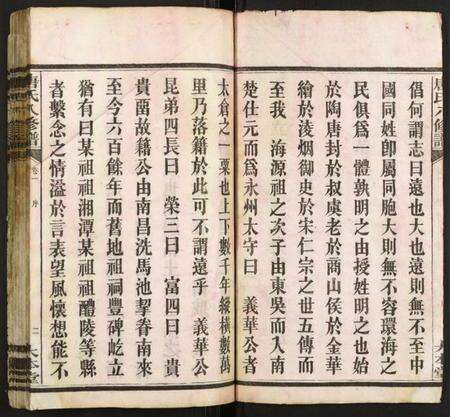 倡何謂志曰遠也大也遠則無不至中
國同姓卽屬同胞大則無不容環海之
民俱爲一體孰明之由授姓明之也始
於陶唐封於叔虞老於商山侯於金華
繪於淩烟御史於宋仁宗之世五傳而
至我 海源祖之次子由東吳而入南
楚仕元而爲永州太守曰 義華公者
太倉之一粟也上下數千年縱橫數萬
里乃落籍於此可不謂遠乎 義華公
昆弟四長曰 榮三曰 富四曰 貴
貴菑故籍公由南昌洗馬池挈眷南來
至今六百餘年而舊地祖祠豐碑屹立
猶有曰某祖祖湘潭某祖祖醴陵等縣
者繫念之情溢於言表望風懷想能不
唐氏八修譜
卷一 序
二